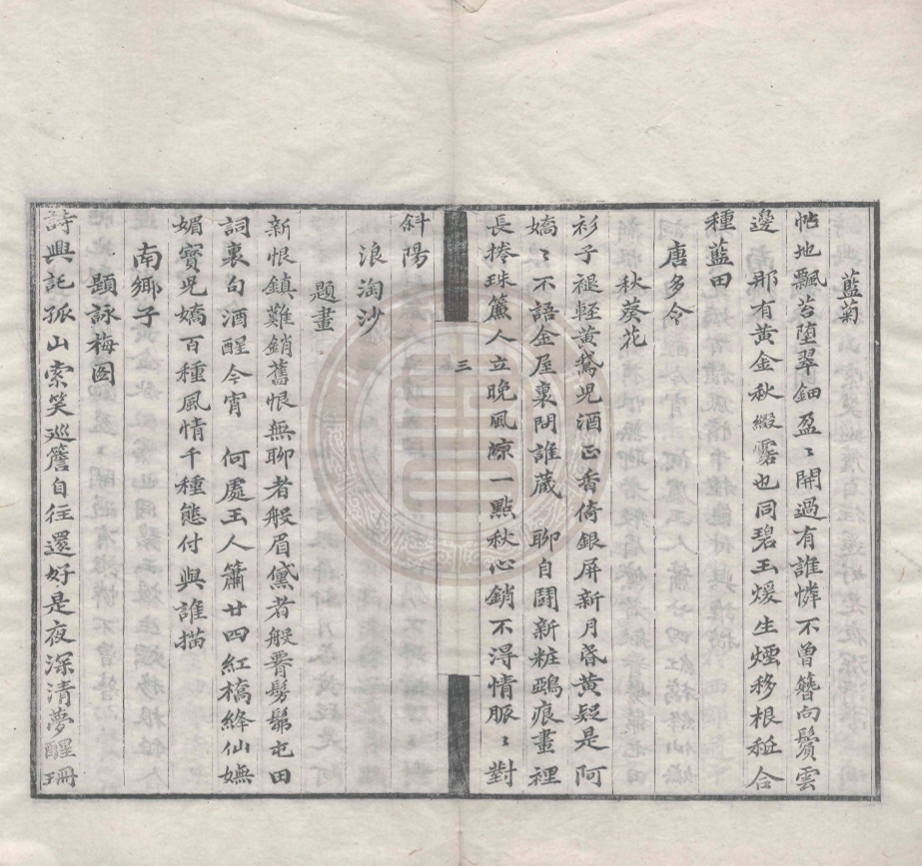 藍菊
帖地飄苔墮翠鈿盈〻開過有誰憐不曾簪向鬢雲
邊　那有黃金秋緞露也同碧玉煖生煙移根秪合
種藍田
唐多令
秋葵花
衫子褪輕黃鵝兒酒正香倚銀屏新月昏黃疑是阿
嬌〻不語金屋裏問誰藏　聊自鬪新粧鵶痕畫裡
長捲珠簾人立晚風涼一點秋心銷不淂情脈〻對
三
斜陽
浪淘沙
題畫
新恨鎮難銷舊恨無聊者般眉黛者般霄髣髴屯田
詞裏句酒醒今宵　何處玉人簫廿四紅橋絳仙嫵
媚寶兒嬌百種風情千種態付與誰描
南鄉子
題詠梅圖
詩興託孤山索笑巡簷自往還好是夜深清夢醒珊